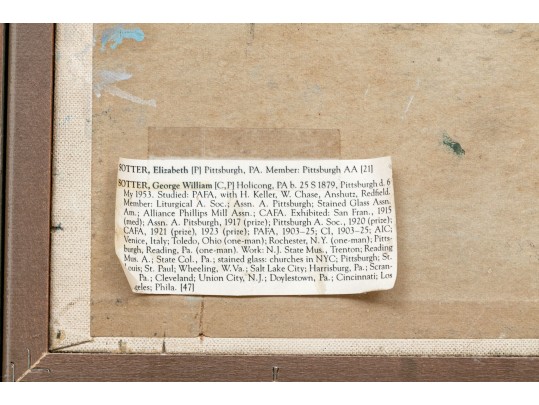 OTTER, Elizabeth [P] Pittsburgh, PA. Member: Pittsburgh AA [21]
SOTTER, George William [C,P] Holicong, PA b. 25 S 1879, Pittsburgh d. 6
My 1953. Studied: PAFA, with H. Keller, W. Chase, Anshutz, Redfield.
Member: Liturgical A. Soc.; Assn. A. Pittsburgh; Stained Glass Assn.
Am.; Alliance Phillips Mill Assn.; CAFA. Exhibited: San Fran., 1915
(med); Assn. A. Pitsburgh, 1917 (prize); Pittsburgh A. Soc., 1920 (prize);
CAFA, 1921 (prize), 1923 (prize); PAFA, 1903–25; CI, 1903–25; AIC;
Venice, Italy; Toledo, Ohio (one-man); Rochester, N.Y. (one-man); Pitts-
burgh, Reading, Pa. (one-man). Work: N.J. State Mus., Trenton; Reading
Mus. A.; State Col., Pa.; stained glass: churches in NYC; Pittsburgh; St.
ouis; St. Paul; Wheeling, W.Va.; Salt Lake City; Harrisburg, Pa.; Scran-
Pa.; Cleveland; Union City, N.J.; Doylestown, Pa.; Cincinnati; Los
eles; Phila. [47]